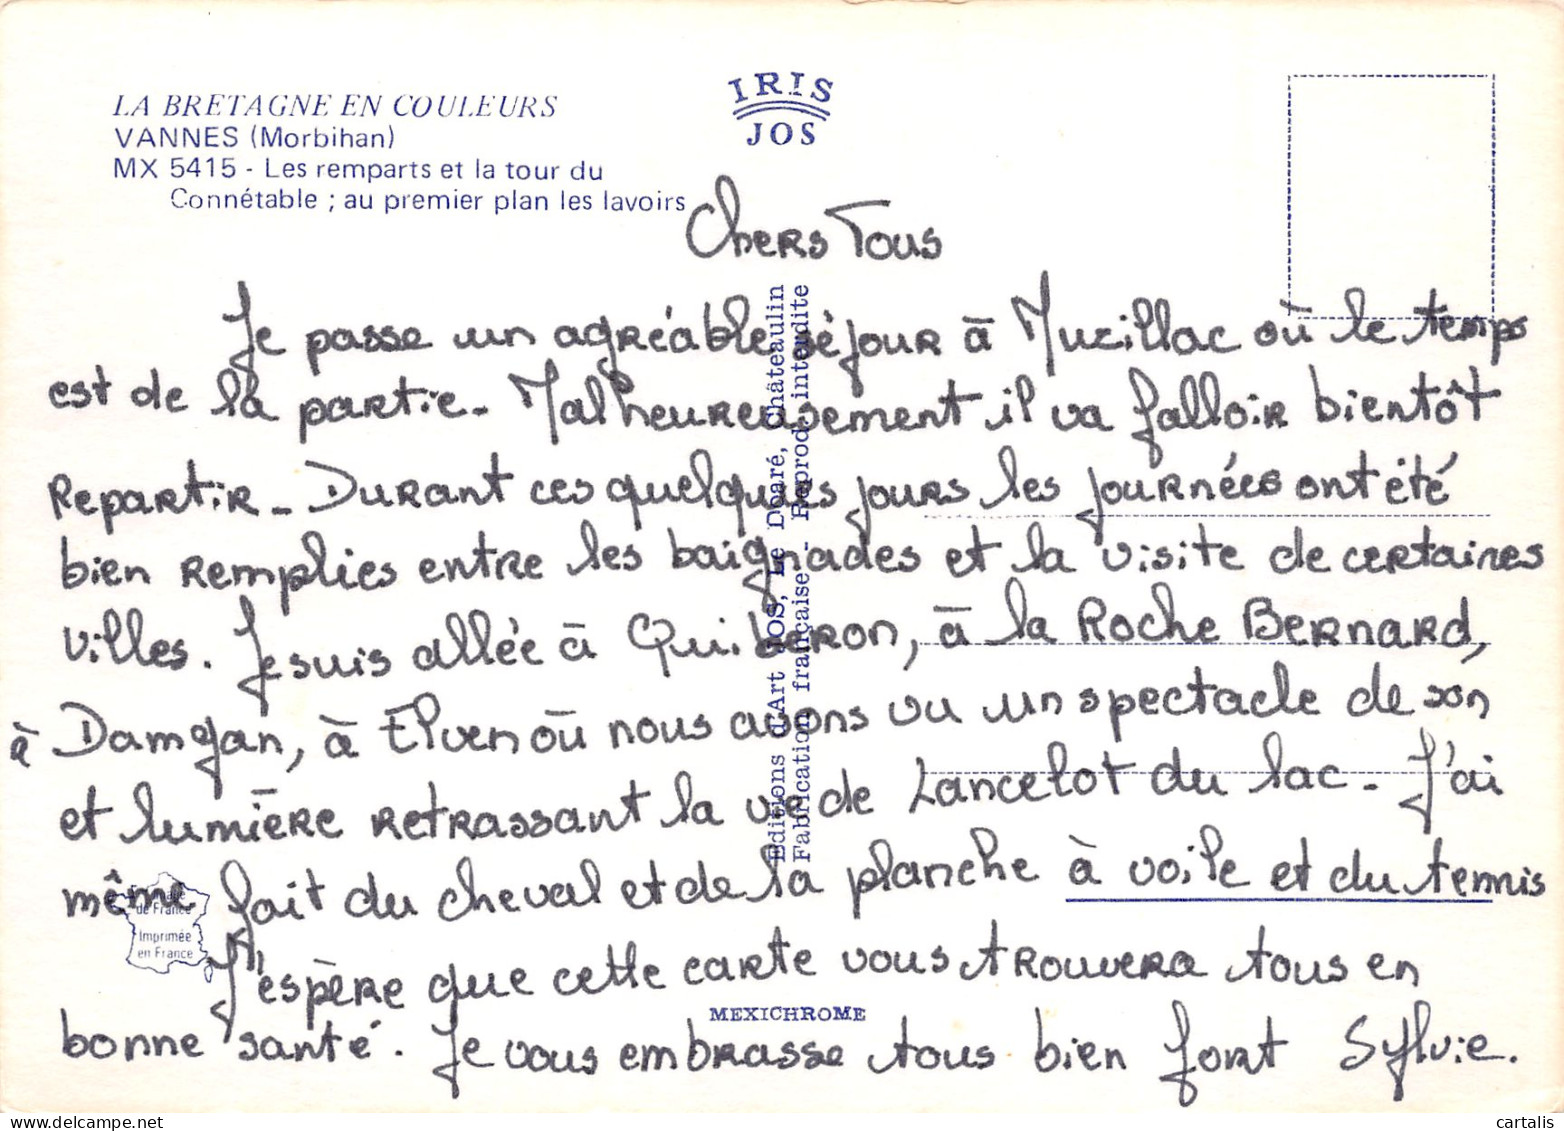 LA BRETAGNE EN COULEURS
VANNES (Morbihan)
MX 5415 - Les remparts et la tour du
Connétable ; au premier plan les lavoirs
IRIS
JOS
Chers Tous
Je passe un agréable séjour à Muzillac où le temps
est de la partie. Malheureusement il va falloir bientôt
repartir. Durant ces quelques jours les journées ont été
bien remplies entre les baignades et la visite de certaines
villes. Je suis allée à Quiberon, à la Roche Bernard,
à Damgan, à Elven où nous avons vu un spectacle de son
et lumière retrassant la vie de Lancelot du lac. J'ai
même fait du cheval et de la planche à voile et du tennis
J'espère que cette carte vous trouvera tous en
bonne santé. Je vous embrasse tous bien fort Sylvie.
Editions d'Art JOS, Le Doaré, Châteaulin
Fabrication française - Reprod. interdite
de France
Imprimée
en France
MEXICHROME
cartalis